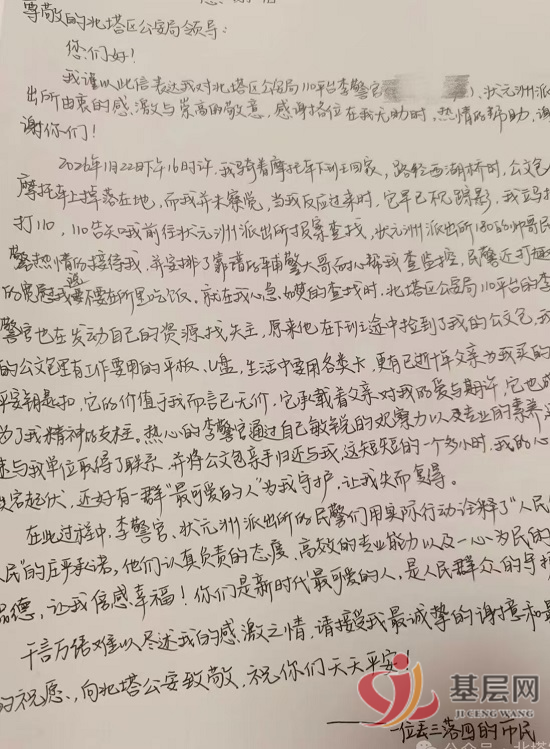 尊敬的北塔区公安局领导：
您们好！
我谨以此信表达我对北塔区公安局110平台李警官 )、状元洲派
出所由衷的感激与崇高的敬意，感谢搭位在我无助时，热情的帮助，谢
谢你们！
2026年1月22日下午16时许，我骑着摩托车下班回家，路经西湖桥时，公文包
摩托车上掉落在地，而我并未察觉，当我反应过来时，它早已不见踪影，我立马拨
打110，110告知我前往状元洲派出所报案查找，状元洲派出所180的帅哥民
警热情的接待我，并安排了靠谱的辅警大哥耐心帮我查监控，民警还打趣
的宽慰我说要不要在所里吃饭，就在我心急如焚的查找时，北塔区公安局110平台的李
警官也在发动自己的资源找失主，原来他在下班途中捡到了我的公文包，我
的公文包里有工作要用的平板、U盘，生活中要用各类卡，更有已逝年父亲为我买的
平安钥匙扣，它的价值于我而言已无价，它承载着父亲对我的爱与期许，它也成
为了我精神的支柱。热心的李警官通过自己敏锐的观察力以及专业的素养迅
速与我单位取得了联系，并将公文包亲手归还与我，这短短的一个多小时，我的心
跌宕起伏，还好有一群“最可爱的人”为我守护，让我失而复得。
在此过程中，李警官、状元洲派出所的民警们用实际行动诠释了“人民
人民”的庄严承诺，他们认真负责的态度、高效的专业能力以及一心为民的
品德，让我倍感幸福！你们是新时代最可爱的人，是人民群众的守护
千言万语难以尽述我的感激之情，请接受我最诚挚的谢意和最
的祝愿，向北塔公安致敬，祝你们天天平安！
——一位丢三落四的市民
基层网
JICENGWANG
公众号 北塔